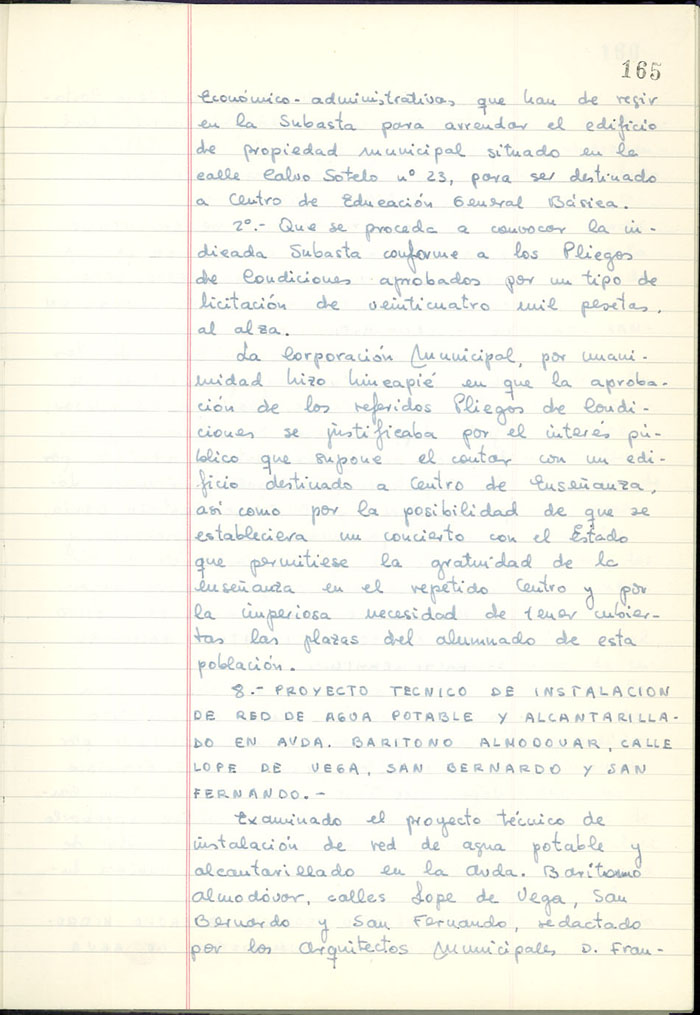 165
Económico-administrativas que han de regir
en la Subasta para arrendar el edificio
de propiedad municipal situado en la
calle Calvo Sotelo nº 23, para ser destinado
a Centro de Educación General Básica.
2º.- Que se proceda a convocar la in-
dicada Subasta conforme a los Pliegos
de Condiciones aprobados por un tipo de
licitación de veinticuatro mil pesetas,
al alza.
La Corporación Municipal, por unani-
midad hizo hincapié en que la aproba-
ción de los referidos Pliegos de Condi-
ciones se justificaba por el interés pú-
blico que supone el contar con un edi-
ficio destinado a Centro de Enseñanza,
así como por la posibilidad de que se
estableciera un concierto con el Estado
que permitiese la gratuidad de la
enseñanza en el repetido Centro y por
la imperiosa necesidad de tener cubier-
tas las plazas del alumnado de esta
población.
8.- PROYECTO TECNICO DE INSTALACION
DE RED DE AGUA POTABLE Y ALCANTARILLA-
DO EN AVDA. BARITONO ALMODOVAR, CALLE
LOPE DE VEGA, SAN BERNARDO Y SAN
FERNANDO.-
Examinado el proyecto técnico de
instalación de red de agua potable y
alcantarillado en la Avda. Barítono
Almodóvar, calles Lope de Vega, San
Bernardo y San Fernando, redactado
por los Arquitectos Municipales D. Fran-